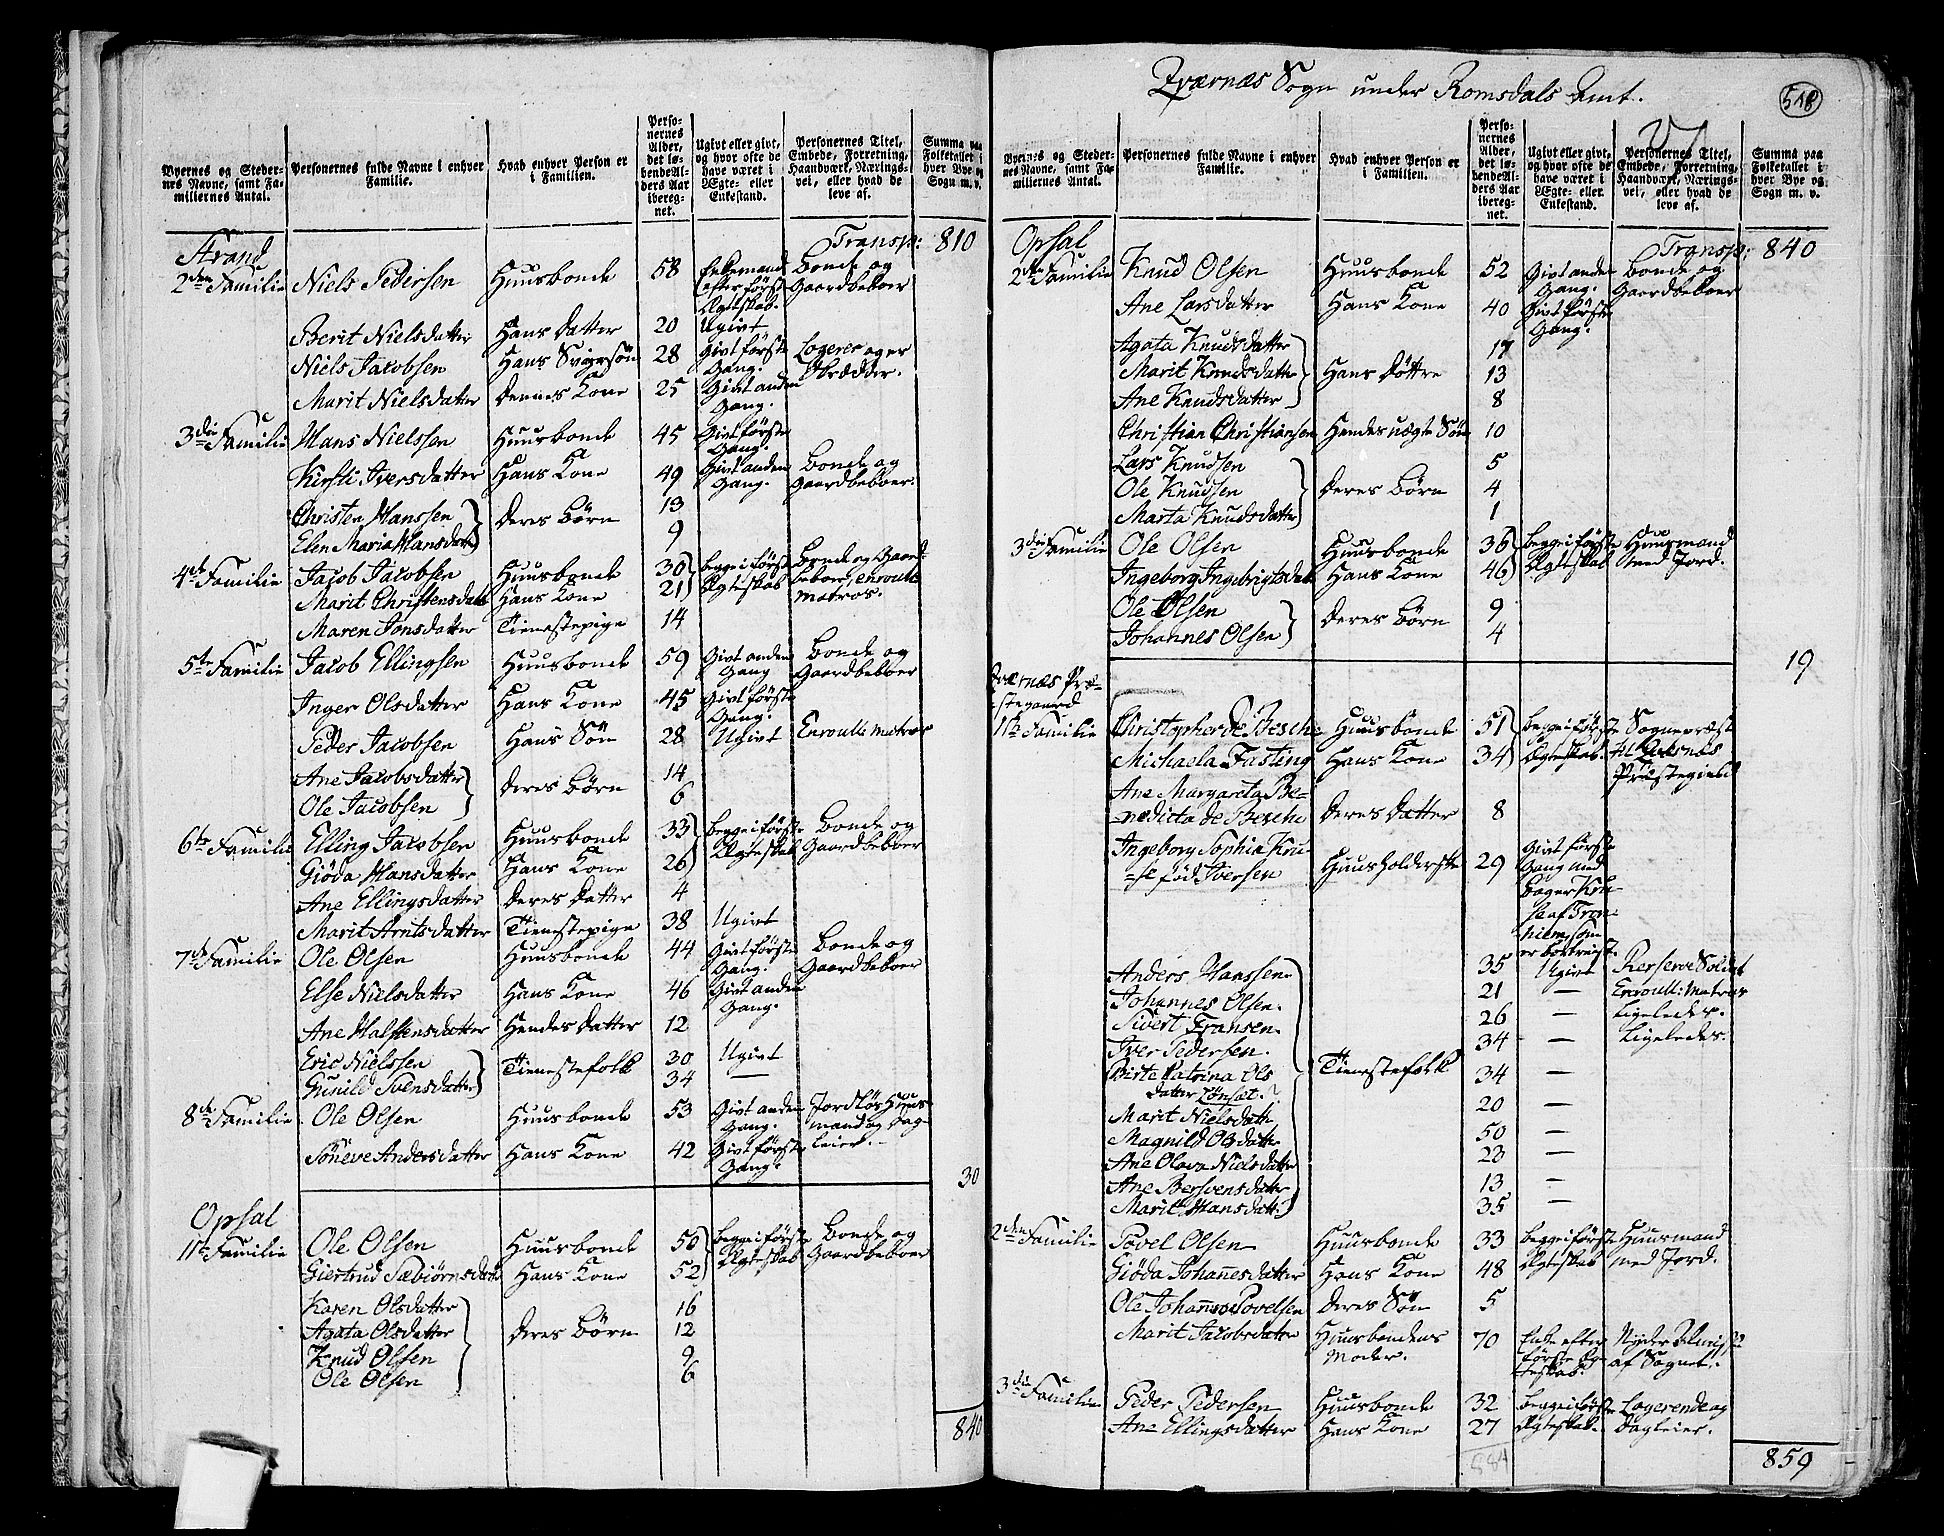 Qværnæs Sogn under Romsdals Amt.
518
Byernes og Stedernes Navne, samt Familiernes Antal.
Personernes fulde Navne i enhver Familie.
Hvad enhver Person er i Familien.
Personernes Alder, det løbende Alders Aar iberegnet.
Ugivt eller givt, og hvor ofte de have været i Ægte- eller Enkestand.
Personernes Titel, Embede, Forretning, Haandværk, Næringsvei, eller hvad de leve af.
Summa paa Folketallet i hver Bye og Sogn m. v.
Strand Transp: 810
2den Familie Niels Pedersen Huusbonde 58 Enkemand efter første Ægteskab. Bonde og Gaardbeboer
Berit Nielsdatter Hans Datter 20 Ugivt
Niels Jacobsen Hans Svigersøn 28 Givt første Gang. Logerer og er
Marit Nielsdatter Dennes Kone 25 Givt anden Gang.
3die Familie Hans Nielssen Huusbonde 45 Givt første Gang.
Kirsti Iversdatter Hans Kone 49 Givt anden Gang. Bonde og Gaardbeboer.
Christen Hanssen } Deres Børn 13
Elen Maria Hansdatter 9
4de Familie Jacob Jacobsen Huusbonde 30 Begge i første Ægteskab Bonde og Gaardbeboer, enroull: matros.
Marit Christensdatt Hans Kone 21
Maren Jonsdatter Tienestepige 14
5te Familie Jacob Ellingsen Huusbonde 59 Givt anden Gang Bonde og Gaardbeboer
Inger Olsdatter Hans Kone 45 Givt første Gang.
Peder Jacobsen Hans Søn 28 Ugivt Enroull: matros
Ane Jacobsdatter } Deres Børn 14
Ole Jacobsen 6
6te Familie Elling Jacobsen Huusbonde 33 Begge i første Ægteskab Bonde og Gaardbeboer
Giøda Hansdatter Hans Kone 26
Ane Ellingsdatter Deres Datter 4
Marit Arntsdatter Tienestepige 38 Ugivt
7de Familie Ole Olsen Huusbonde 44 Givt første Gang. Bonde og Gaardbeboer
Else Nielsdatter Hans Kone 46 Givt anden Gang.
Ane Halstensdatter Hendes Datter 12
Eric Nielssen } Tienestefolk 30 Ugivt
Gunild Svensdatter 34 —
8de Familie Ole Olsen Huusbonde 53 Givt anden Gang. Jordløs Huusmand og Dagleier.
Søneve Andersdatter Hans Kone 42 Givt første Gang.
30
Opsal
1te Familie Ole Olsen Huusbonde 50 Begge i første Ægteskab Bonde og Gaardbeboer
Giertrud Sæbiørnsdatt Hans Kone 52
Karen Olsdatter 16
Agata Olsdatter } Deres Børn 12
Knud Olsen 9
Ole Olsen 6
840
Byernes og Stedernes Navne, samt Familiernes Antal.
Personernes fulde Navne i enhver Familie.
Hvad enhver Person er i Familien.
Personernes Alder, det løbende Alders Aar iberegnet.
Ugivt eller givt, og hvor ofte de have været i Ægte- eller Enkestand.
Personernes Titel, Embede, Forretning, Haandværk, Næringsvei, eller hvad de leve af.
Summa paa Folketallet i hver Bye og Sogn m. v.
Opsal Transp: 840
2den Familie Knud Olsen Huusbonde 52 Givt anden Gang. Bonde og Gaardbeboer
Ane Larsdatter Hans Kone 40 Givt første Gang.
Agata Knudsdatter 17
Marit Knudsdatter } Hans Døttre 13
Ane Knudsdatter 8
Christian Christiansen Hendes uægte Søn 10
Lars Knudsen 5
Ole Knudsen } Deres Børn 4
Marta Knudsdatter 1
3die Familie Ole Olsen Huusbonde 36 Begge i første Ægteskab Huusmand med Jord.
Ingeborg Ingebrigtsdatt Hans Kone 46
Ole Olsen } Deres Børn 9
Johannes Olsen 4
19
Qværnæs Præstegaard
1te Familie Christopher de Besche Huusbonde 51 Begge i første Ægteskab. Sognepræst til Qværnæs Præstegield
Michaela Fasting Hans Kone 34
Ane Margareta Benedicta de Besche Deres Datter 8
Ingeborg Sophia Kruse fød Iversen Huusholderske 29 Givt første Gang med Kruse af Tronhiem, som er bortreist.
Anders Hanssen 35 Ugivt Reserve Soldat
Johannes Olsen. 21 — Enroull: Matros
Sivert Fransen. 26 — Ligeledes.
Iver Pedersen. 34 — Ligeledes.
Birte Catrina Olsdatter Lønset. Tienestefolk 34 —
Marit Nielsdatt 20 —
Magnild Olsdatt 50 —
Ane Olava Nielsdatter 23 —
Ane Bersvensdatter 13 —
Marit Hansdatt: 35 —
2den Familie Povel Olsen Huusbonde 33 Begge i første Ægteskab Huusmand med Jord.
Giøda Johannesdatter Hans Kone 48
Ole Johannes Povelsen Deres Søn 5
Marit Jacobsdatter Huusbondens Moder. 70 Enke efter første Ægteskab. Nyder Almisse af Sognet.
3die Familie Peder Pedersen Huusbonde 32 Begge i første Ægteskab. Logerende og Dagleier.
Ane Ellingsdatter Hans Kone 27
884
859